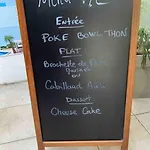 Menu
Entrée
POKE BOWL-THON
PLAT
Brochette de
ou
Cabillaud
Dessert
Cheese Cake